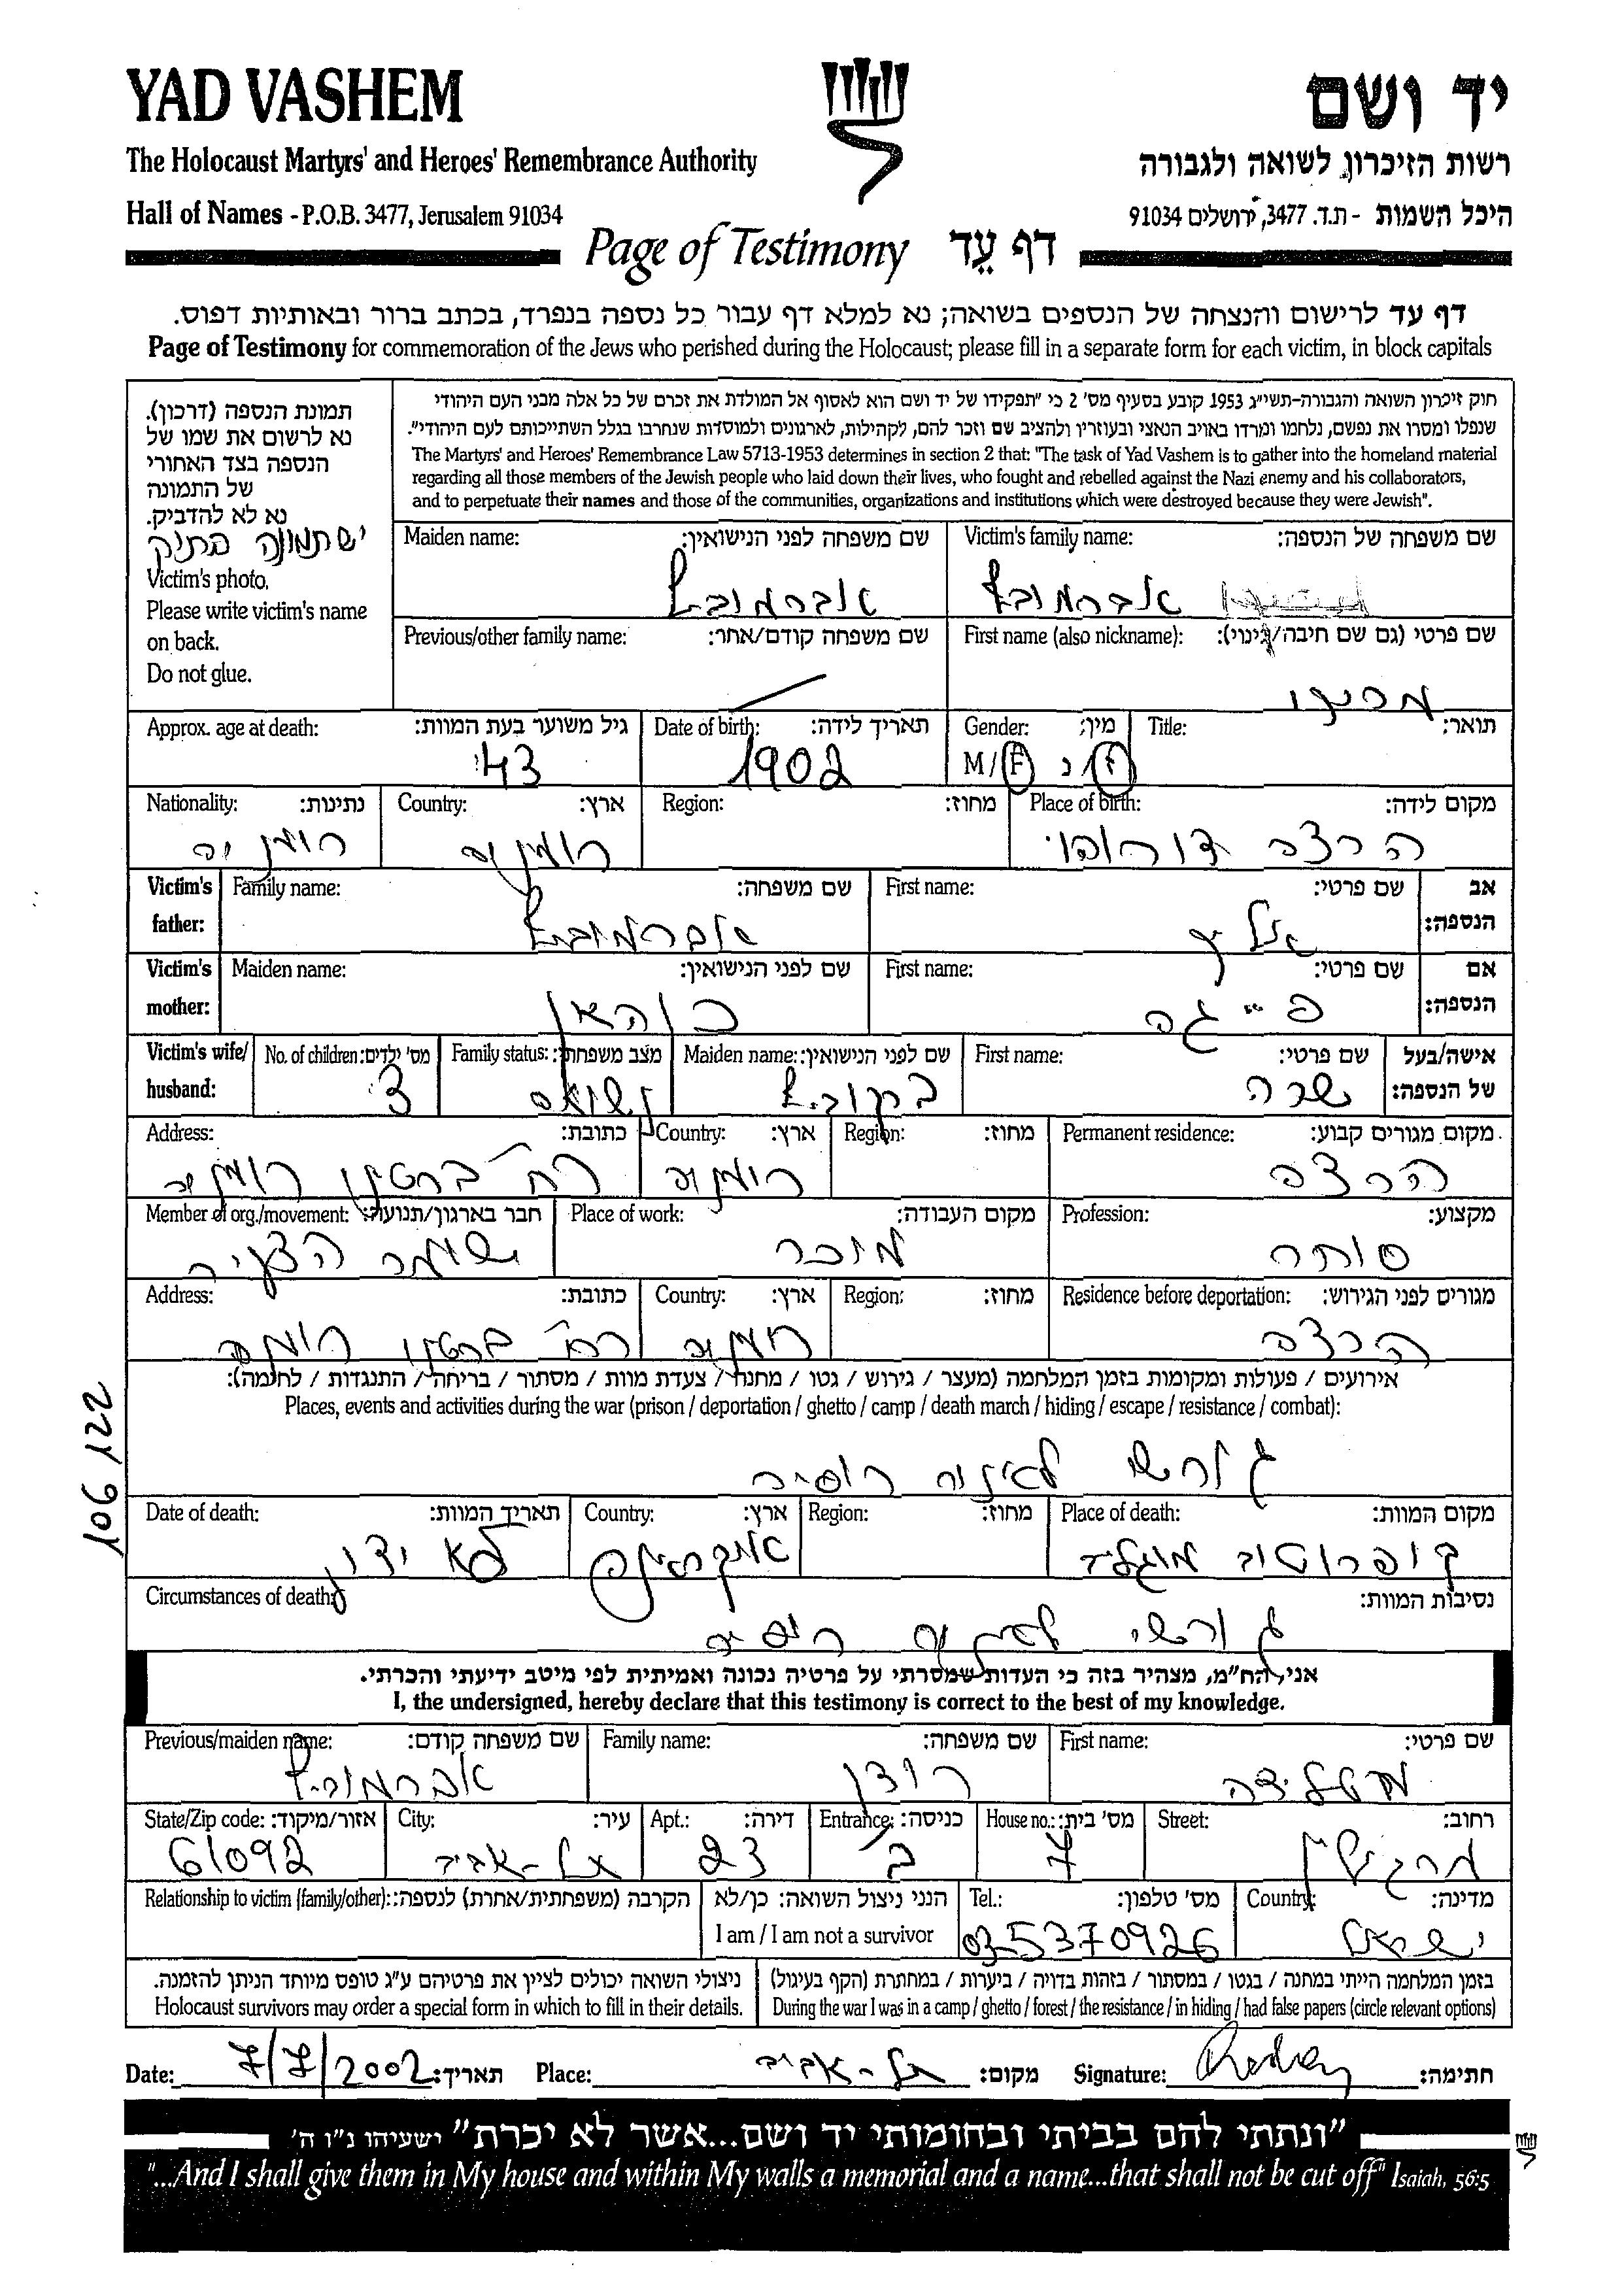 YAD VASHEM
יד ושם
The Holocaust Martyrs' and Heroes' Remembrance Authority
רשות הזיכרון לשואה ולגבורה
Hall of Names - P.O.B. 3477, Jerusalem 91034
היכל השמות - ת.ד. 3477, ירושלים 91034
Page of Testimony דף עֵד
דף עד לרישום והנצחה של הנספים בשואה; נא למלא דף עבור כל נספה בנפרד, בכתב ברור ובאותיות דפוס.
Page of Testimony for commemoration of the Jews who perished during the Holocaust; please fill in a separate form for each victim, in block capitals
תמונת הנספה (דרכון).
נא לרשום את שמו של
הנספה בצד האחורי
של התמונה
נא לא להדביק.
יש תמונה בתיק
Victim's photo.
Please write victim's name
on back.
Do not glue.
חוק זיכרון השואה והגבורה-תשי"ג 1953 קובע בסעיף מס' 2 כי "תפקידו של יד ושם הוא לאסוף אל המולדת את זכרם של כל אלה מבני העם היהודי
שנפלו ומסרו את נפשם, נלחמו ומרדו באויב הנאצי ובעוזריו ולהציב שם וזכר להם, לקהילות, לארגונים ולמוסדות שנחרבו בגלל השתייכותם לעם היהודי".
The Martyrs' and Heroes' Remembrance Law 5713-1953 determines in section 2 that: "The task of Yad Vashem is to gather into the homeland material
regarding all those members of the Jewish people who laid down their lives, who fought and rebelled against the Nazi enemy and his collaborators,
and to perpetuate their names and those of the communities, organizations and institutions which were destroyed because they were Jewish".
Victim's family name: שם משפחה של הנספה:
אברמוביץ
Maiden name: שם משפחה לפני הנישואין:
אברמוביץ
First name (also nickname): שם פרטי (גם שם חיבה/כינוי):
Previous/other family name: שם משפחה קודם/אחר:
Title: תואר:
Gender: מין:
M / F ז / נ
Date of birth: תאריך לידה:
1902
Approx. age at death: גיל משוער בעת המוות:
43
Place of birth: מקום לידה:
הרצה דורוהוי
Region: מחוז:
Country: ארץ:
רומניה
Nationality: נתינות:
רומניה
Victim's father: אב הנספה:
First name: שם פרטי:
Family name: שם משפחה:
אברמוביץ
Victim's mother: אם הנספה:
First name: שם פרטי:
פייגה
Maiden name: שם לפני הנישואין:
כוהאן
Victim's wife/ husband: אישה/בעל של הנספה:
First name: שם פרטי:
שרה
Maiden name: שם לפני הנישואין:
Family status: מצב משפחתי:
No. of children: מס' ילדים:
3
Permanent residence: מקום מגורים קבוע:
הרצה
Region: מחוז:
Country: ארץ:
רומניה
Address: כתובת:
רח' רומניה
Profession: מקצוע:
סוחר
Place of work: מקום העבודה:
מוכר
Member of org./movement: חבר בארגון/תנועה:
שומר הצעיר
Residence before deportation: מגורים לפני הגירוש:
הרצה
Region: מחוז:
Country: ארץ:
רומניה
Address: כתובת:
רח' רומניה
אירועים / פעולות ומקומות בזמן המלחמה (מעצר / גירוש / גטו / מחנה / צעדת מוות / מסתור / בריחה / התנגדות / לחימה):
Places, events and activities during the war (prison / deportation / ghetto / camp / death march / hiding / escape / resistance / combat):
גורשו רוסיה
Place of death: מקום המוות:
Region: מחוז:
Country: ארץ:
אוקראינה
Date of death: תאריך המוות:
לא ידוע
Circumstances of death: נסיבות המוות:
רוסיה
אני, הח"מ, מצהיר בזה כי העדות שמסרתי על פרטיה נכונה ואמיתית לפי מיטב ידיעתי והכרתי.
I, the undersigned, hereby declare that this testimony is correct to the best of my knowledge.
First name: שם פרטי:
מטילדה
Family name: שם משפחה:
רודן
Previous/maiden name: שם משפחה קודם:
אברמוביץ
Street: רחוב:
House no.: מס' בית:
7
Entrance: כניסה:
ב
Apt.: דירה:
23
City: עיר:
תל-אביב
State/Zip code: אזור/מיקוד:
61092
Country: מדינה:
ישראל
Tel.: מס' טלפון:
035370926
הנני ניצול השואה: כן/לא
I am / I am not a survivor
Relationship to victim (family/other): הקרבה (משפחתית/אחרת) לנספה:
בזמן המלחמה הייתי במחנה / בגטו / במסתור / בזהות בדויה / ביערות / במחתרת (הקף בעיגול)
During the war I was in a camp / ghetto / forest / the resistance / in hiding / had false papers (circle relevant options)
ניצולי השואה יכולים לציין את פרטיהם ע"ג טופס מיוחד הניתן להזמנה.
Holocaust survivors may order a special form in which to fill in their details.
Date: 7/7/2002 תאריך: Place: תל-אביב מקום: Signature: חתימה:
"ונתתי להם בביתי ובחומותי יד ושם...אשר לא יכרת" ישעיהו נ"ו ה'
"...And I shall give them in My house and within My walls a memorial and a name...that shall not be cut off" Isaiah, 56:5
106 122